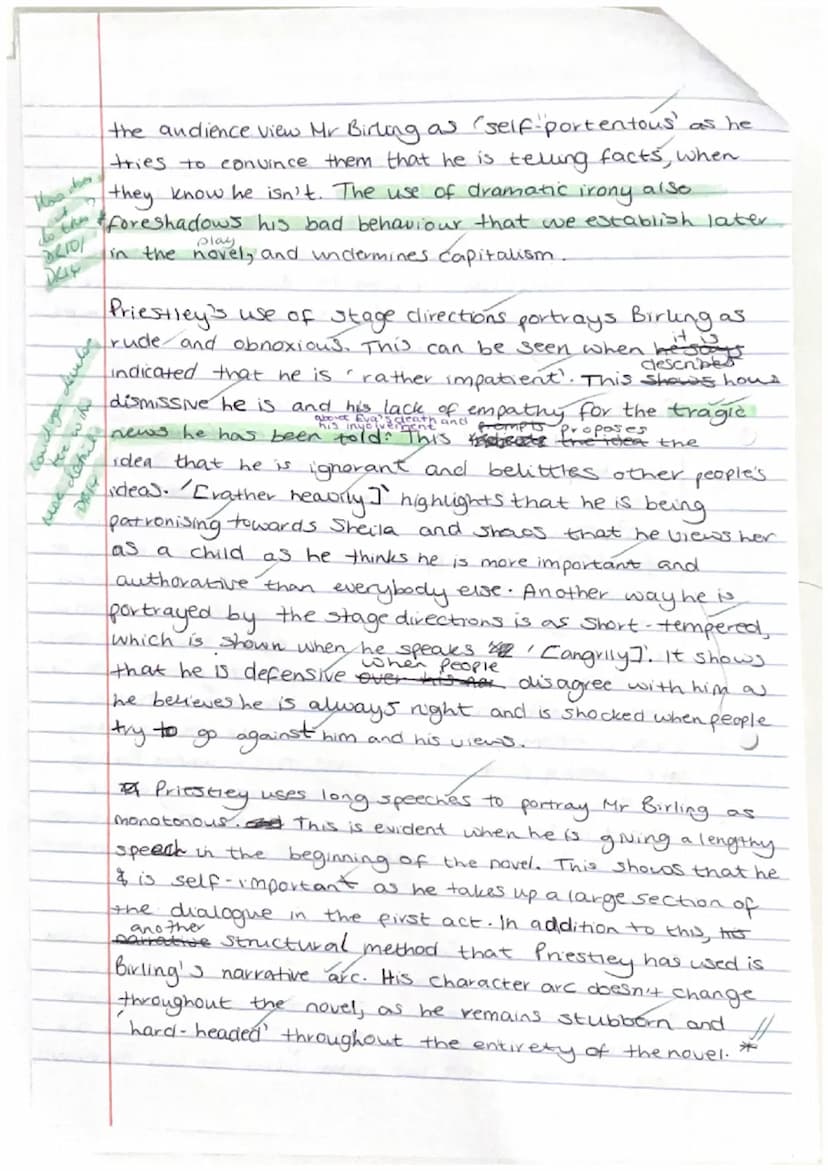 the audience view Mr Birling as 'self-portentous' as he
tries to convince them that he is telling facts, when
they know he isn't. The use of dramatic irony also
foreshadows his bad behaviour that we establish later
play
in the novel, and undermines capitalism.
How does
it
do this?
DR10/
DR14
Priestley's use of stage directions portrays Birling as
rude and obnoxious. This can be seen when he says it is
indicated that he is 'rather impatient'. This shows describes how
dismissive he is and his lack of empathy for the tragic
about Eva's death and
his involvement
news he has been told. This prompts proposes the idea the
idea that he is ignorant and belittles other people's
ideas. '[rather heavily]' highlights that he is being
patronising towards Sheila and shows that he views her
as a child as he thinks he is more important and
authorative than everybody else. Another way he is
portrayed by the stage directions is as short-tempered,
which is shown when he speaks '[angrily]'. It shows
that he is defensive over his when people disagree with him as
he believes he is always right and is shocked when people
try to go against him and his views.
Could you develop
more detail
DR14
Priestley uses long speeches to portray Mr Birling as
monotonous. and This is evident when he is giving a lengthy
speech in the beginning of the novel. This shows that he
is self-important as he takes up a large section of
the dialogue in the first act. In addition to this, his
narrative another structural method that Priestley has used is
Birling's narrative arc. His character arc doesn't change
throughout the novel, as he remains stubborn and
'hard-headed' throughout the entirety of the novel. *